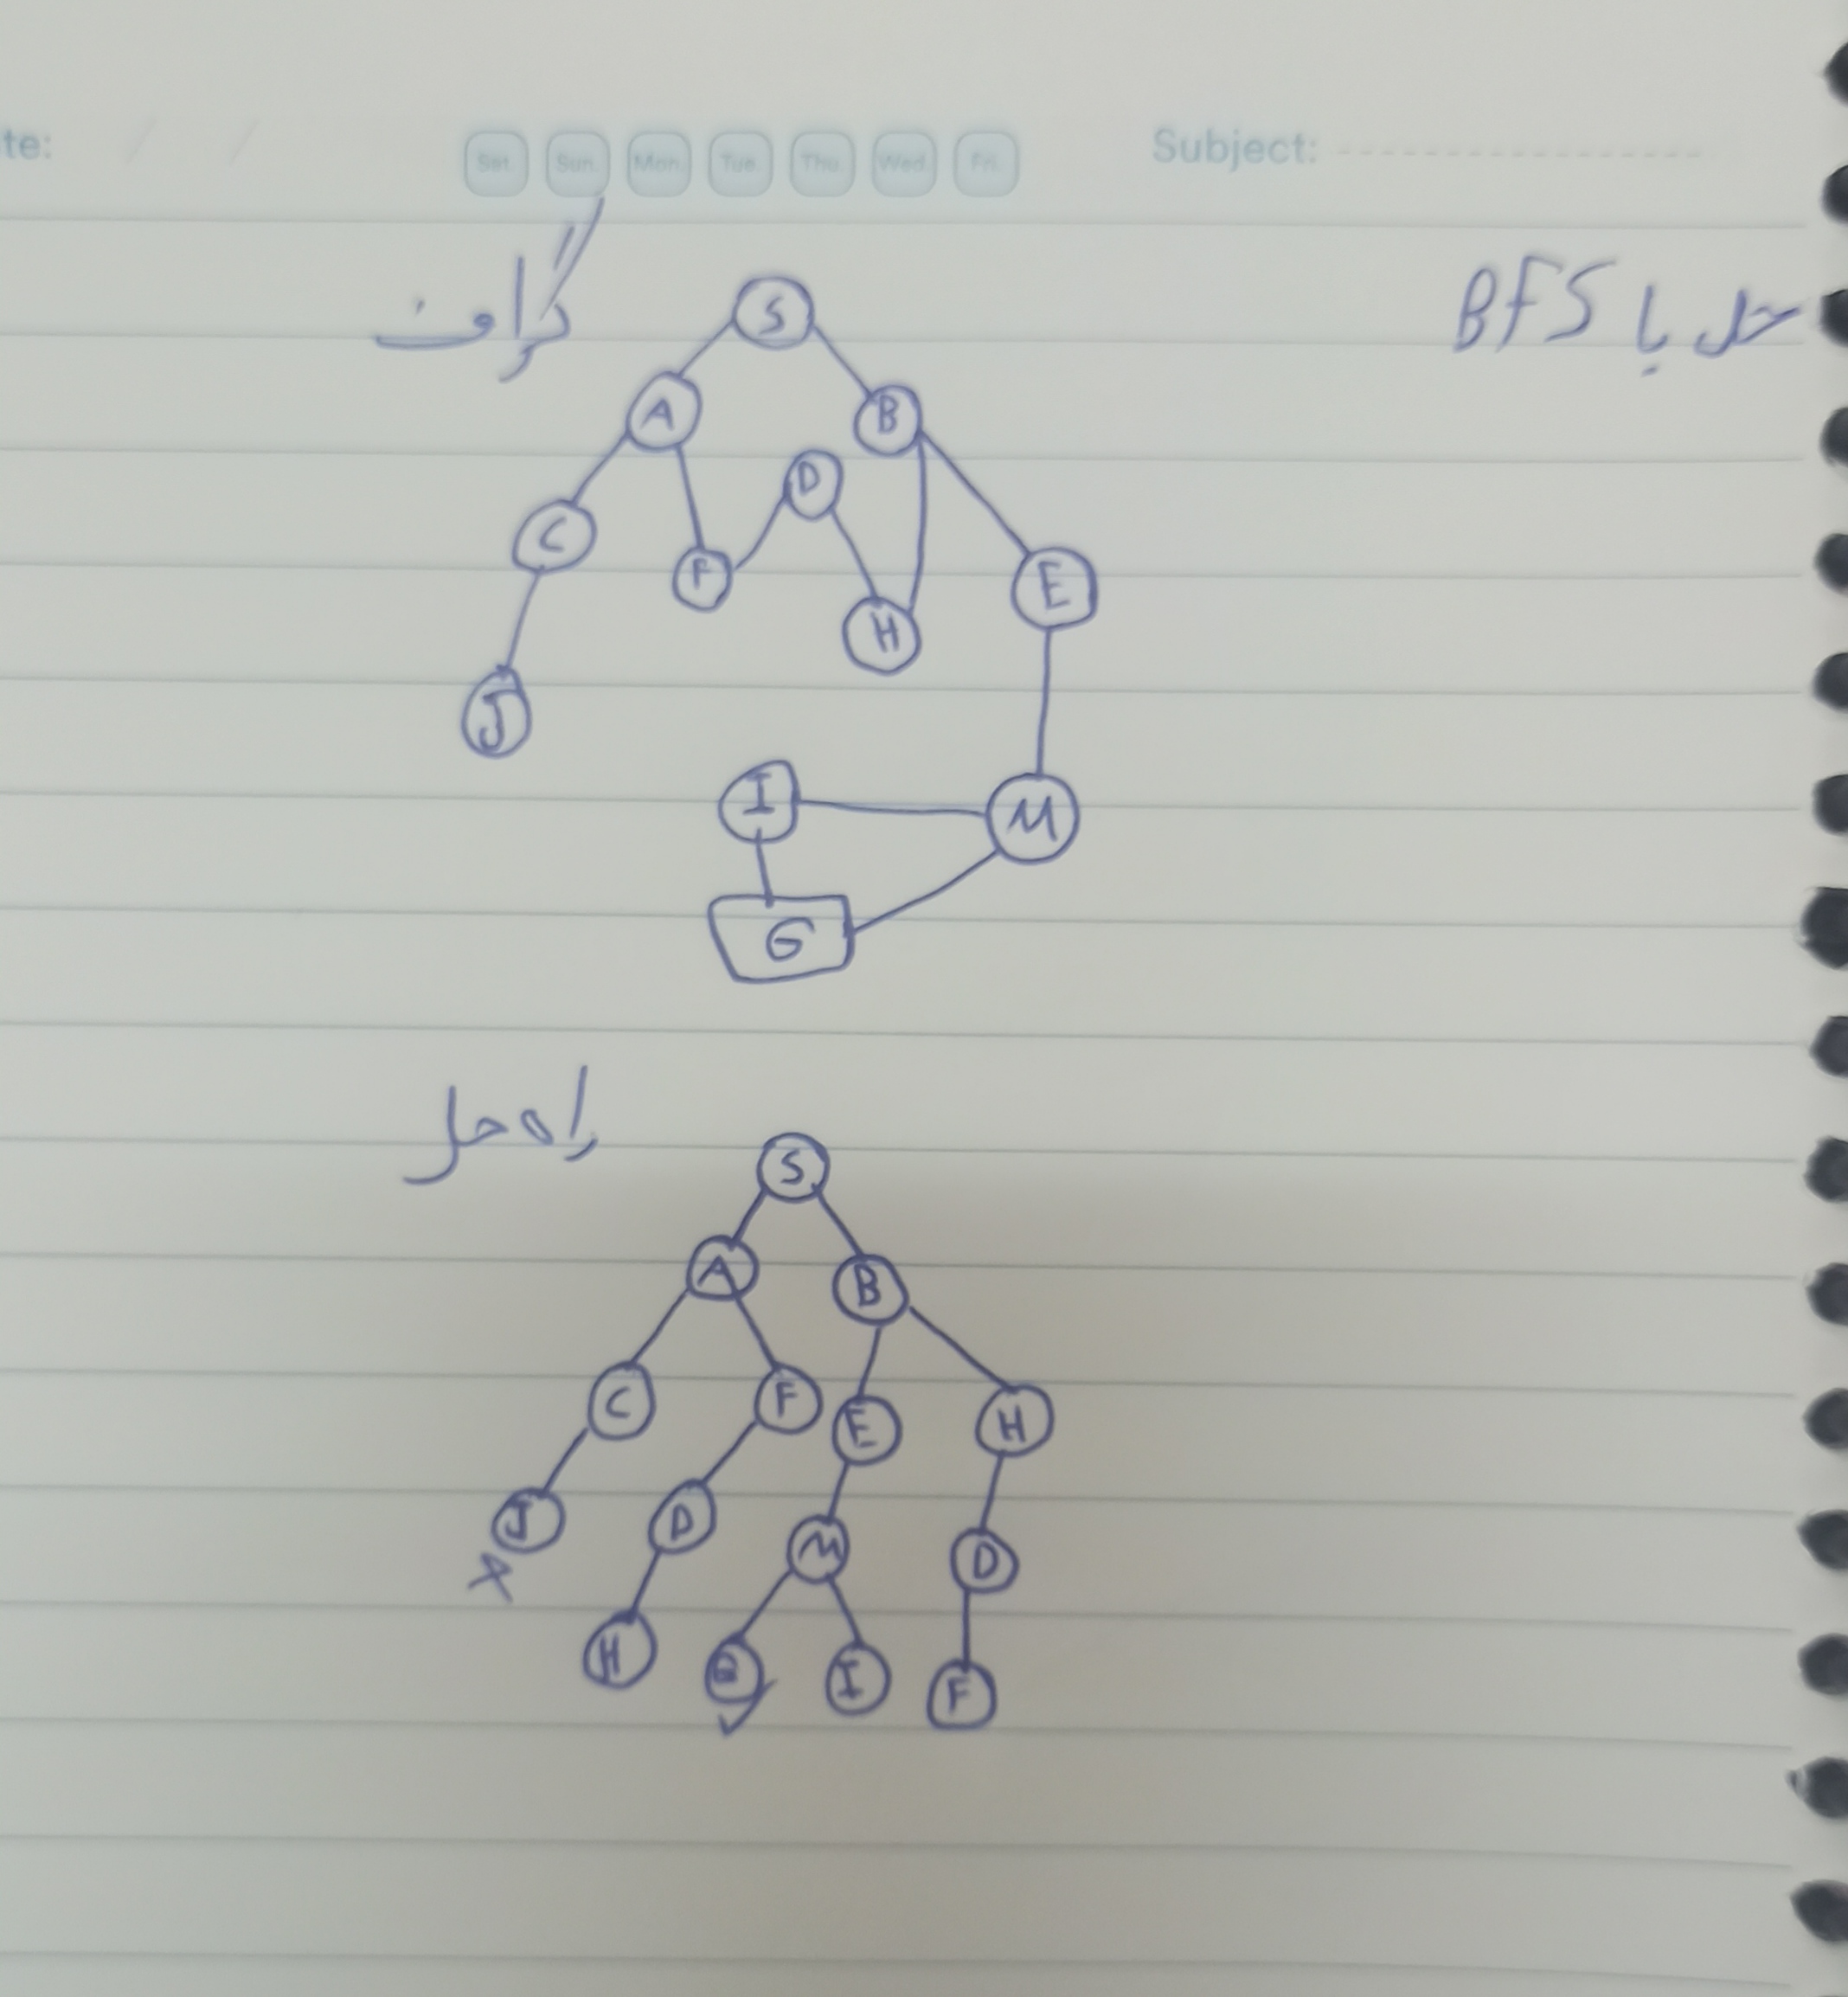 te: / /
Sat. Sun. Mon. Tue. Thu. Wed. Fri.
Subject:
حل با BFS
گراف
S
A B
D
C F E
H
J
I M
G
راه حل
S
A B
C F E H
J D M D
H I F